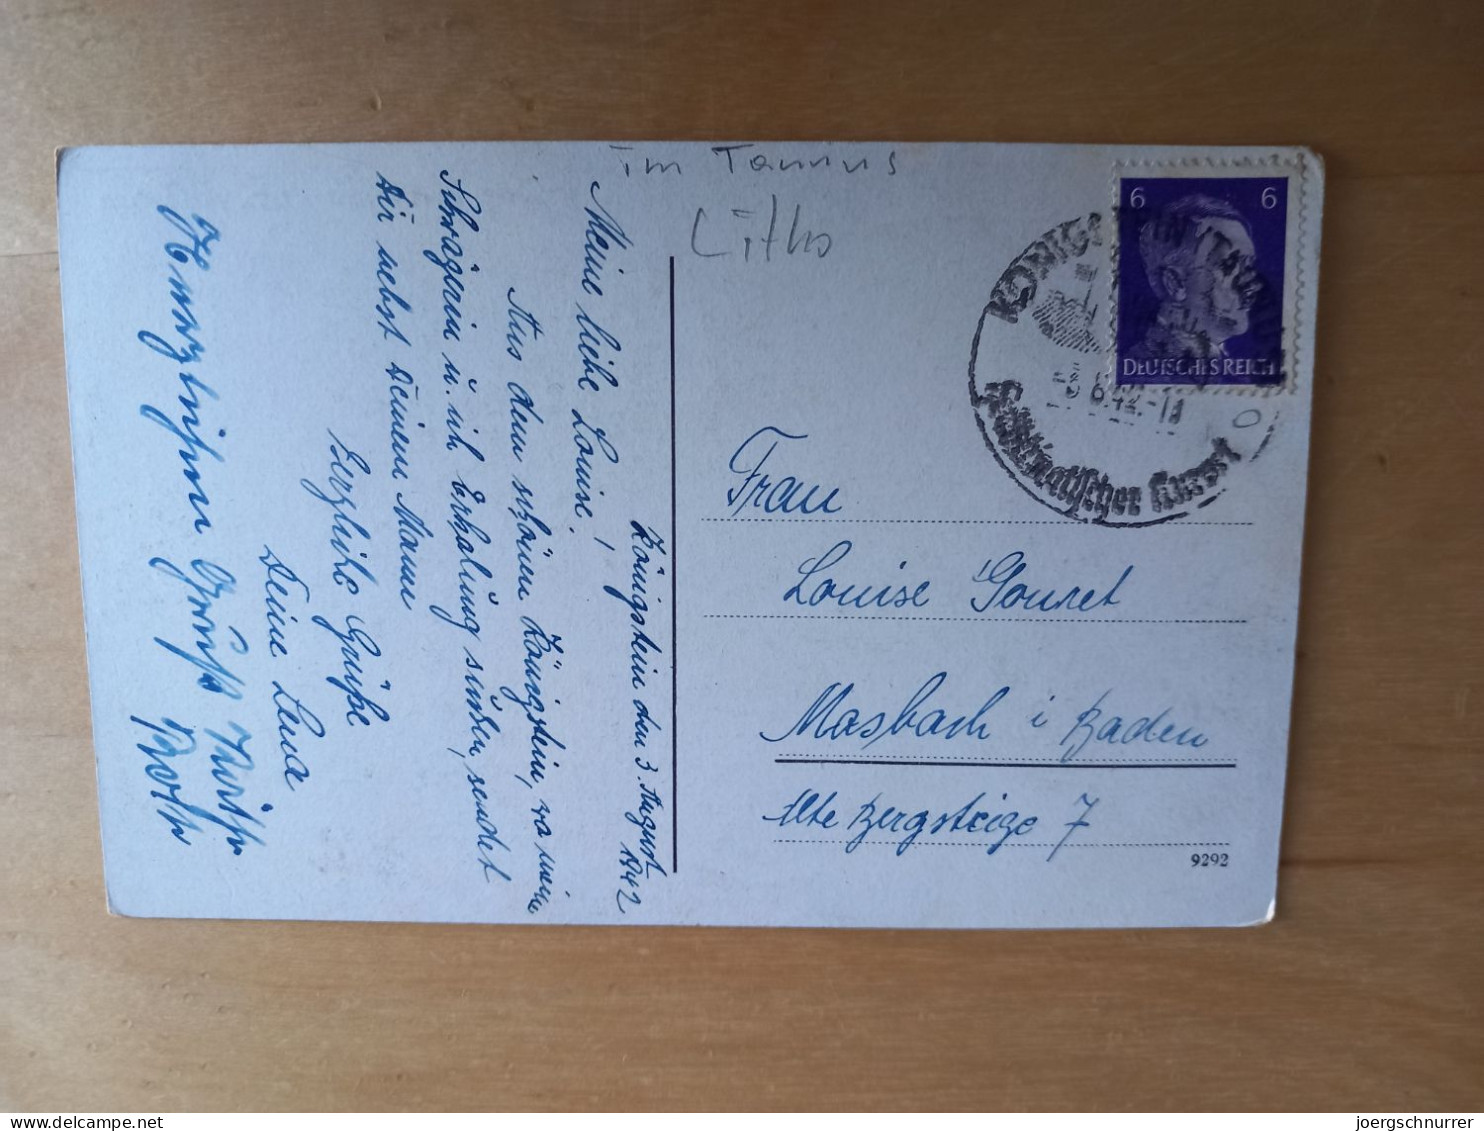 im Taunus
Litho
Königstein den 3. August
1942
Meine liebe Louise!
Aus dem schönen Königstein, wo meine
Schwägerin u. ich Erholung suchen, sendet
Dir nebst Deinem Mann
Herzliche Grüße
Deine Lena
Herzlichen Gruß
6 6
DEUTSCHES REICH
KÖNIGSTEIN (TAUNUS)
Heilklimatischer Kurort
Frau
Louise Gouret
Mosbach i Baden
Alte Bergsteige 7
9292
joergschnurrer